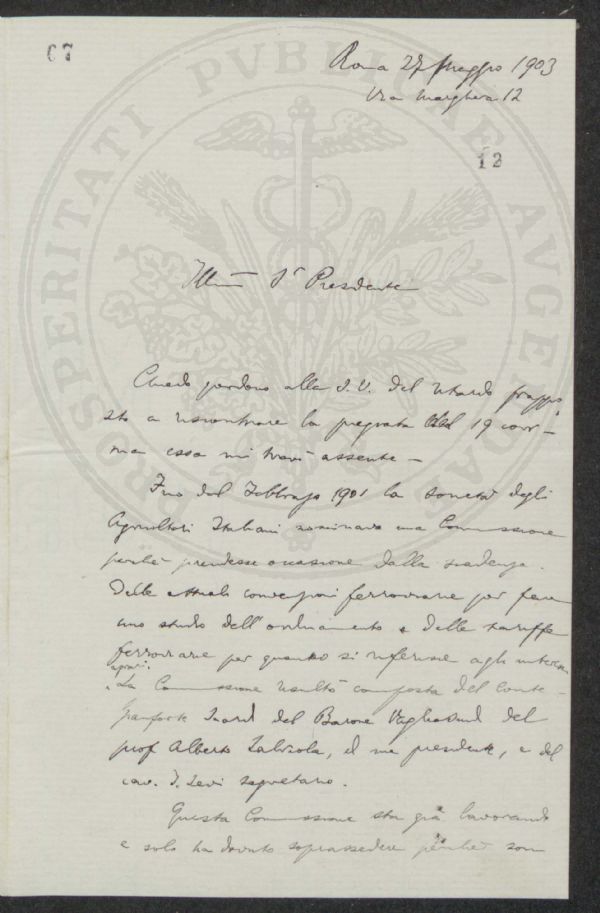 67
Roma 27 Maggio 1903
Via Marghera 12
12
PROSPERITATI PVBLICAE AVGENDAE
Illmo Sr Presidente
Chiedo perdono alla S.V. del ritardo frappo
sto a riscontrare la pregiata del 19 corr.
ma essa mi trovò assente –
Fino dal Febbrajo 1901 la società degli
Agricoltori Italiani nominava una Commissione
perchè prendesse occasione dalla scadenza
delle attuali convenzioni ferroviarie per fare
uno studio dell'ordinamento e delle tariffe
ferroviarie per quanto si riferisce agli interessi
agrari.
La Commissione resultò composta del Conte
del Barone del
prof Alberto Labriola, il me presidente, e del
cav. I. Levi segretario.
Questa Commissione sta già lavorando
e solo ha dovuto soprassedere perchè sono